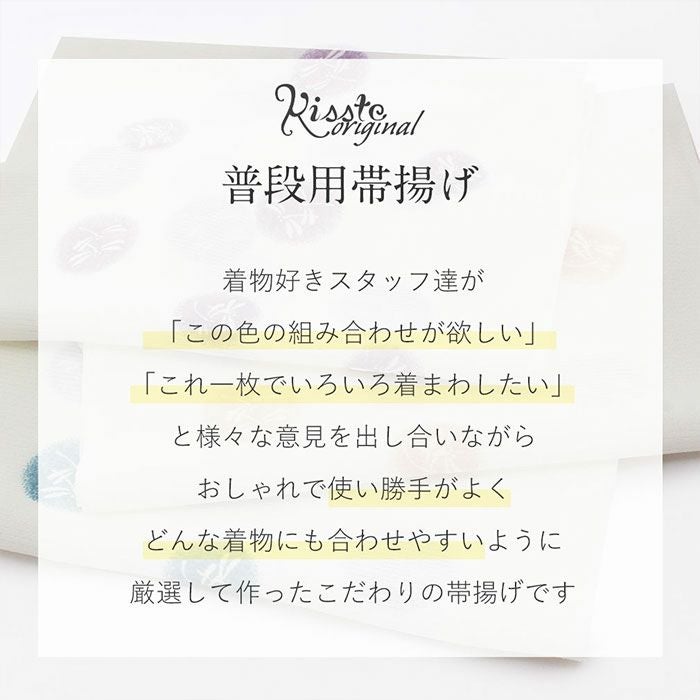 Kisste
original
普段用帯揚げ
着物好きスタッフ達が
「この色の組み合わせが欲しい」
「これ一枚でいろいろ着まわしたい」
と様々な意見を出し合いながら
おしゃれで使い勝手がよく
どんな着物にも合わせやすいように
厳選して作ったこだわりの帯揚げです